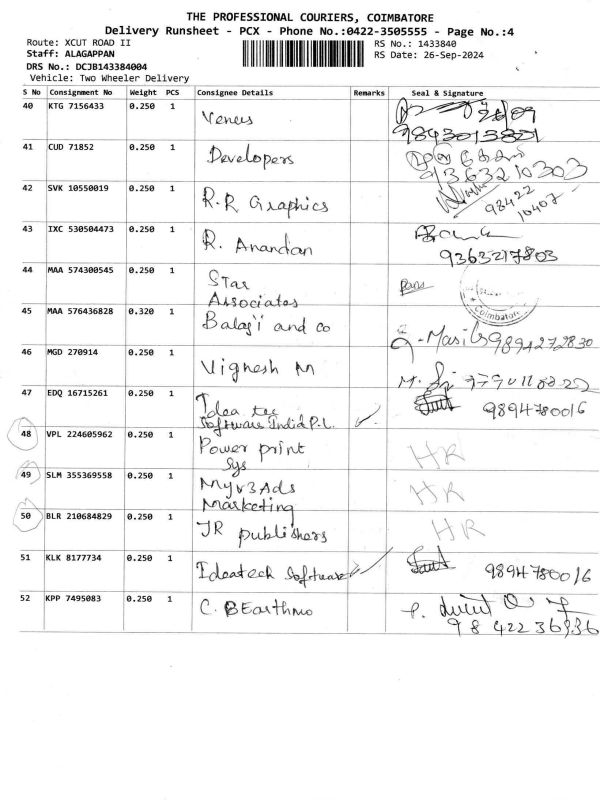 THE PROFESSIONAL COURIERS, COIMBATORE
Delivery Runsheet - PCX - Phone No.:0422-3505555 - Page No.:4
Route: XCUT ROAD II RS No.: 1433840
Staff: ALAGAPPAN RS Date: 26-Sep-2024
DRS No.: DCJB143384004
Vehicle: Two Wheeler Delivery
S No Consignment No Weight PCS Consignee Details Remarks Seal & Signature
40 KTG 7156433 0.250 1 Venus
9843013801
41 CUD 71852 0.250 1 Developers
9363210303
42 SVK 10550019 0.250 1 R.R Graphics 98422
10407
43 IXC 530504473 0.250 1 R. Anandan
9363217803
44 MAA 574300545 0.250 1 Star
Associates
Coimbatore
45 MAA 576436828 0.320 1 Balaji and co 9894272830
46 MGD 270914 0.250 1 Vignesh M
47 EDQ 16715261 0.250 1 Idea tec
Software India P.L. 9894780016
48 VPL 224605962 0.250 1 Power print
Sys HR
49 SLM 355369558 0.250 1 Myv3Ads
Marketing HR
50 BLR 210684829 0.250 1 JR publishers HR
51 KLK 8177734 0.250 1 Ideatech Software 9894780016
52 KPP 7495083 0.250 1 C. BEarthmo